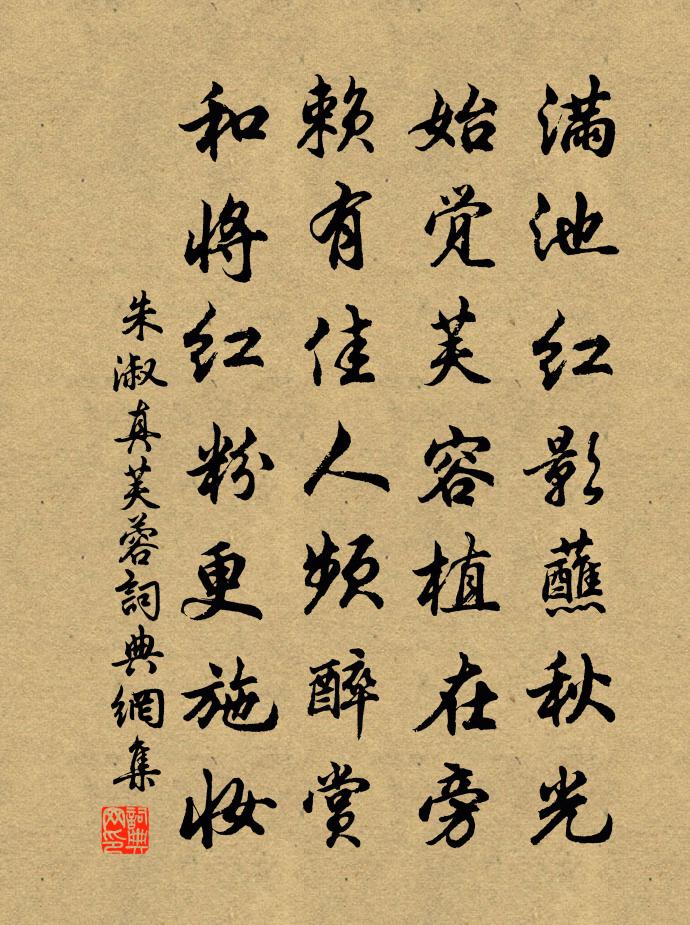 满池红影蘸秋光
始觉芙容植在旁
赖有佳人频醉赏
和将红粉更施妆
朱淑真芙蓉詞典網集
詞典网印